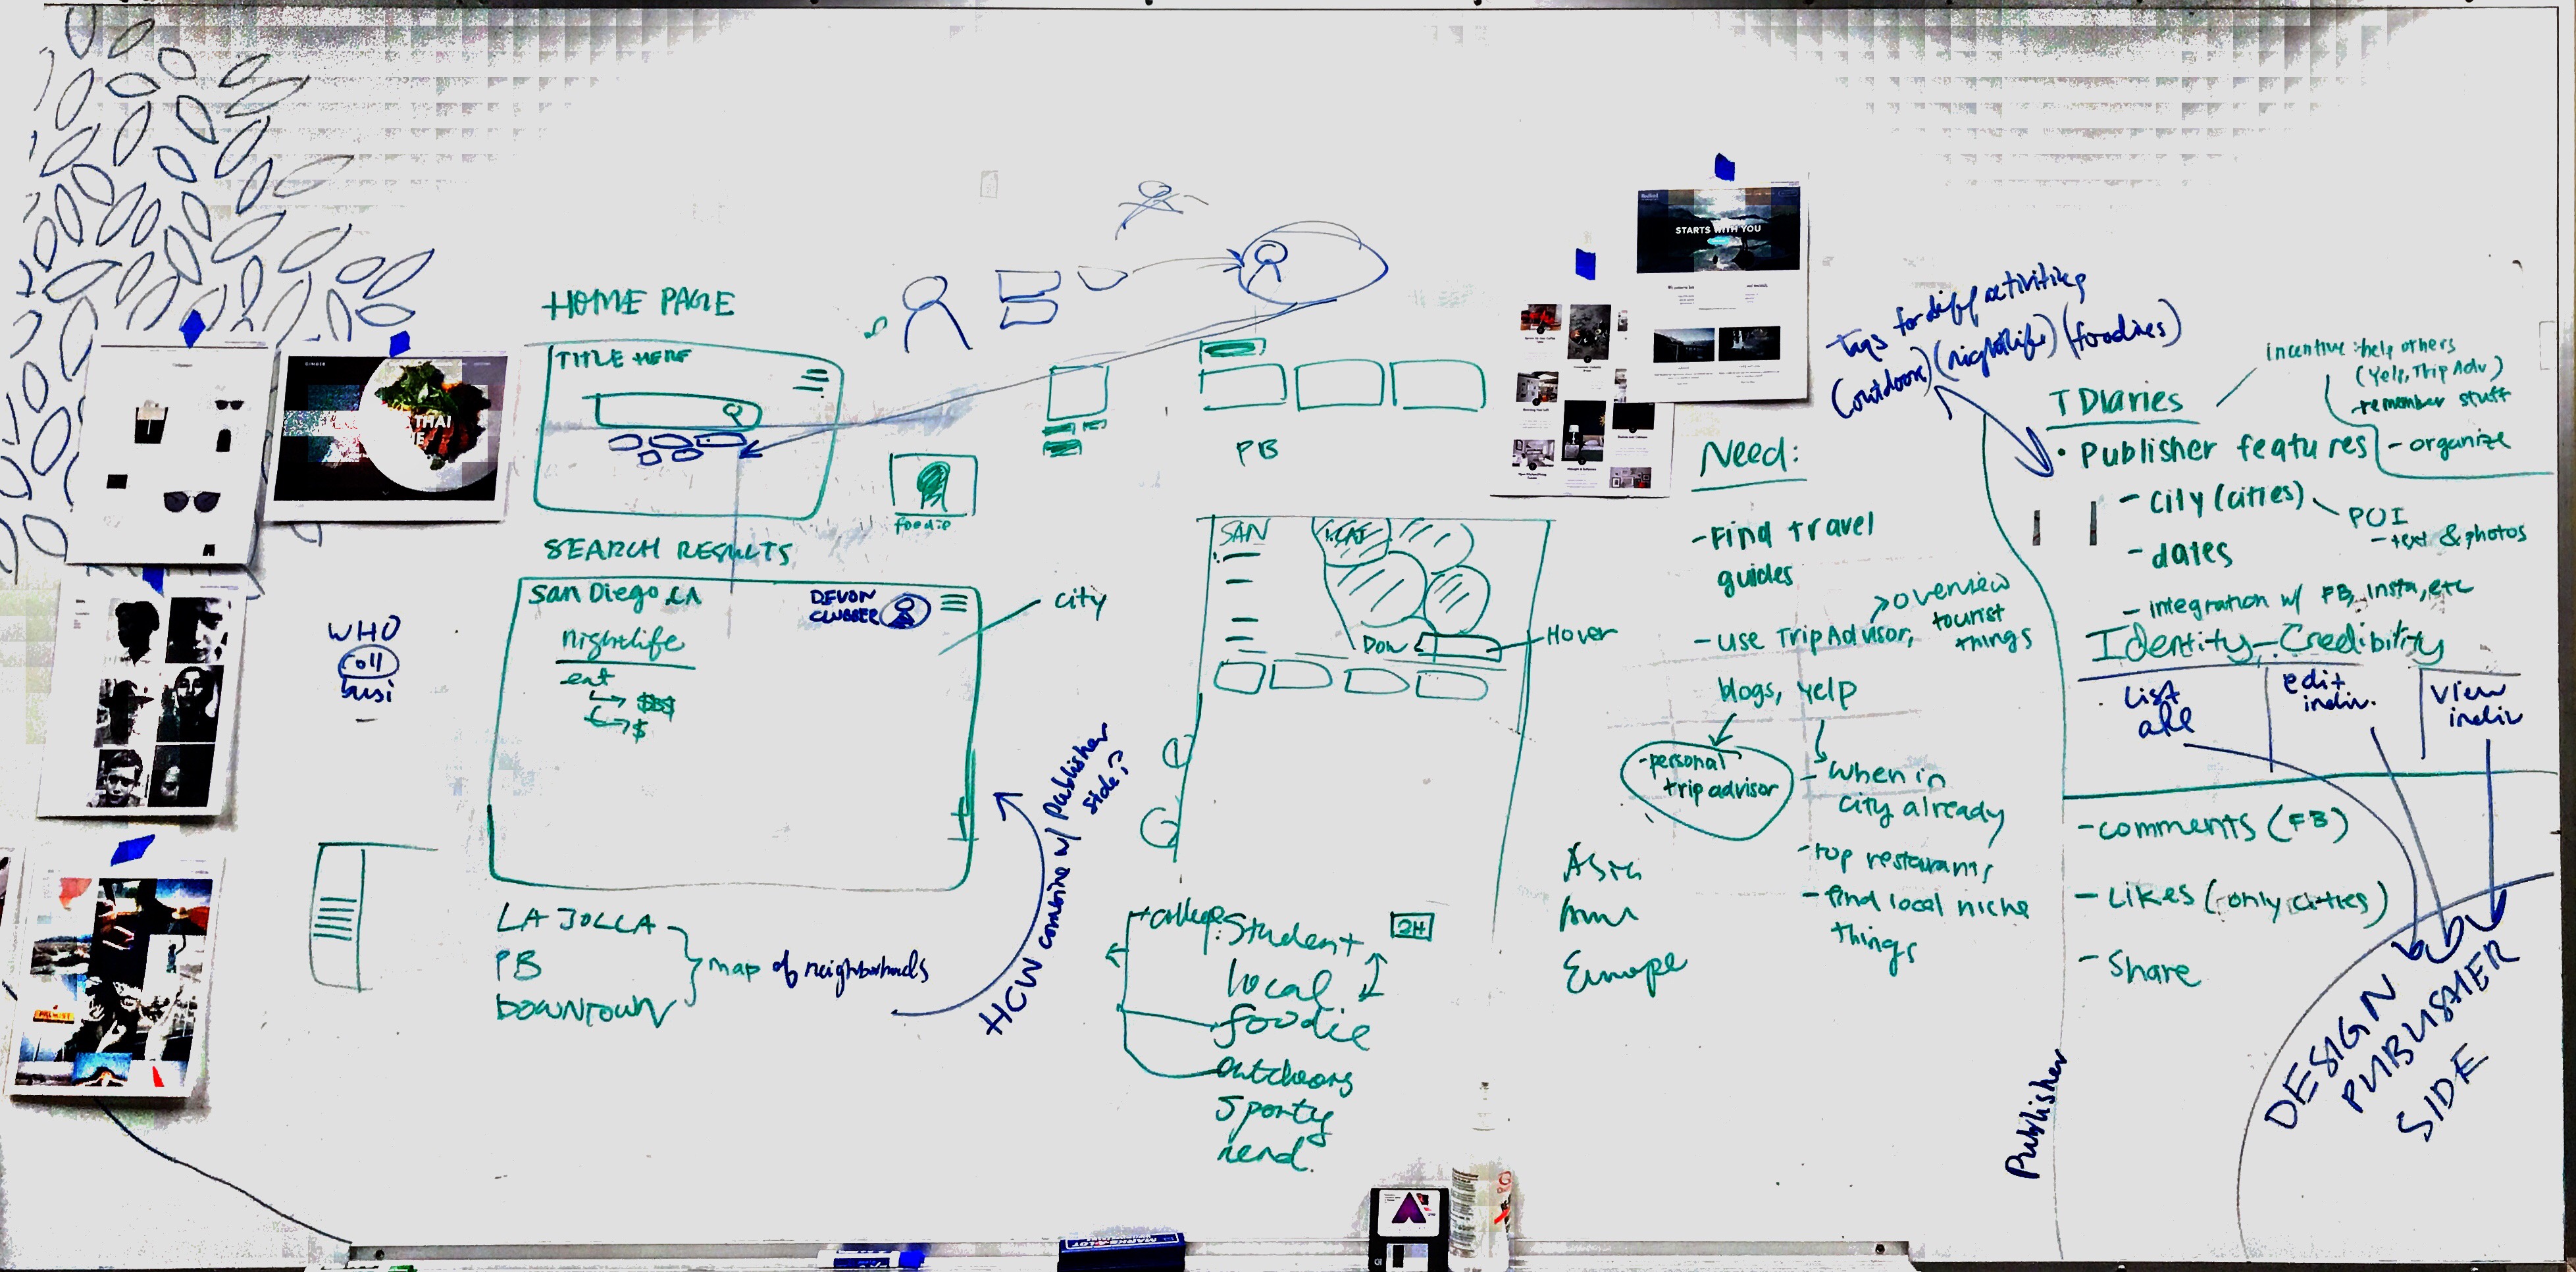 HOME PAGE
TITLE HERE
foodie
SEARCH RESULTS
San Diego, CA
DEVON
CLUBBER
nightlife
eat
$$$
$
city
WHO
coll
busi
LA JOLLA
PB
DOWNTOWN
map of neighborhoods
HOW combine w/ Publisher
side?
PB
SAN
Dow
Hover
+college
Student
local
foodie
outdoors
Sporty
nerd
24
Asia
Europe
STARTS WITH YOU
THAI
Need:
- Find travel
guides
- use TripAdvisor,
blogs, yelp
overview
tourist
things
- personal
trip advisor
- when in
city already
- top restaurants
- find local niche
things
tags for diff activities
(outdoors) (nightlife) (foodies)
T Diaries
incentive: help others
(Yelp, Trip Adv)
- remember stuff
- organize
• Publisher features
- city (cities)
POI
- text & photos
- dates
- integration w/ FB, Insta, etc
Identity - Credibility
List
all
edit
indiv.
view
indiv
- comments (FB)
- Likes (only cities)
- Share
Publisher
DESIGN
PUBLISHER
SIDE
MARKS-A-LOT